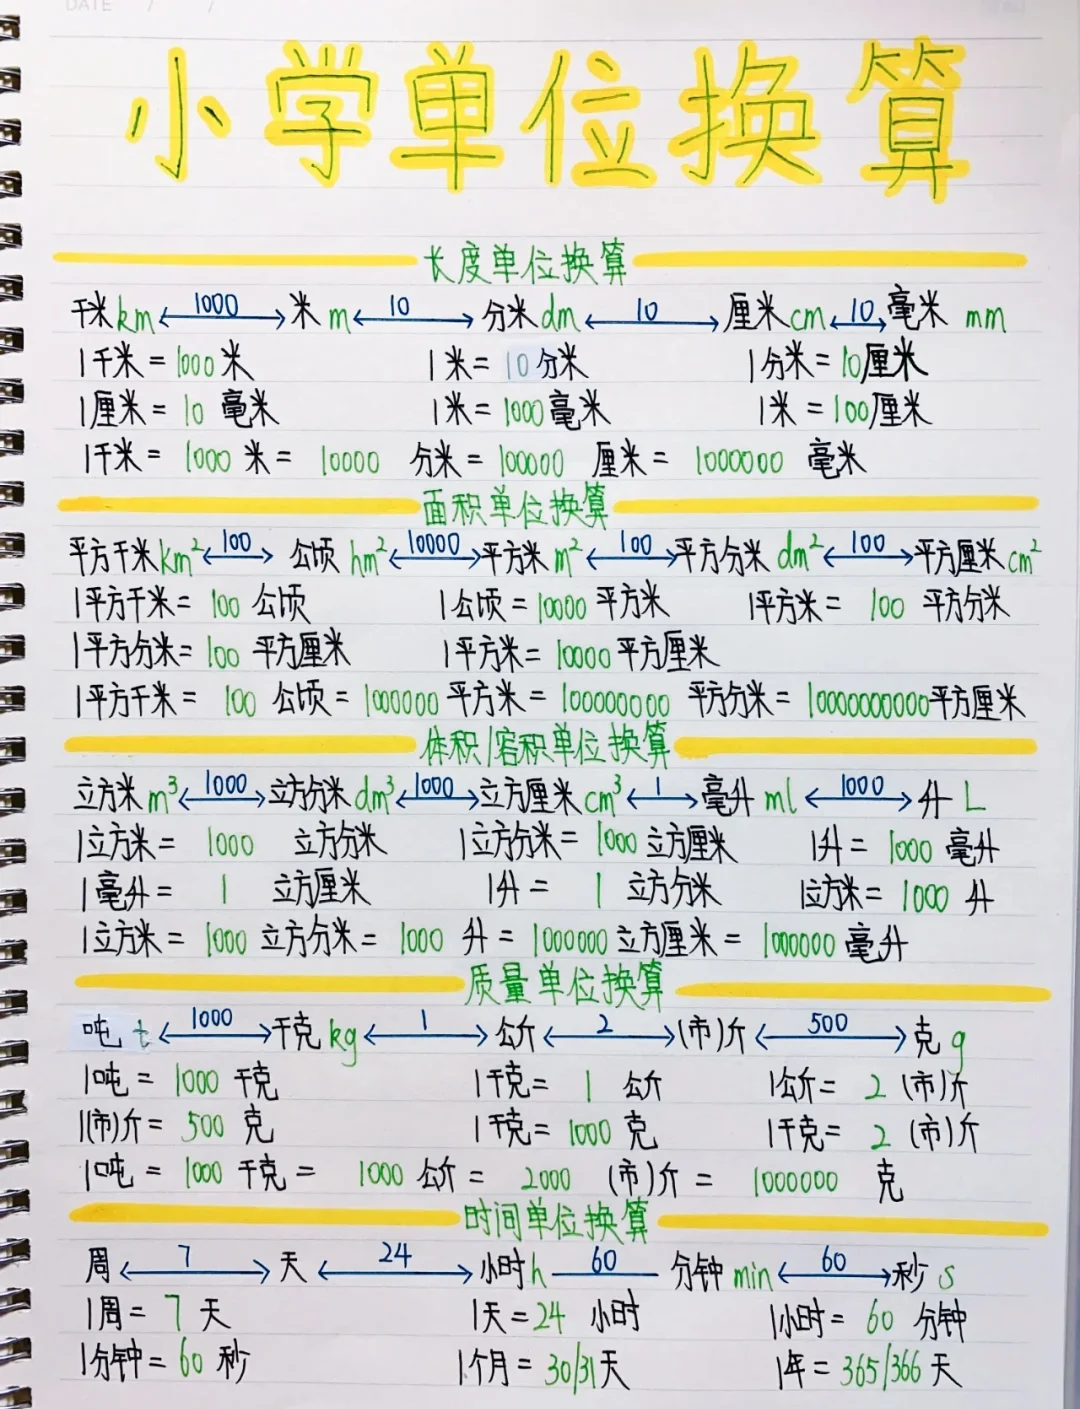 DATE / /
小学单位换算
长度单位换算
千米km 1000 米m 10 分米dm 10 厘米cm 10 毫米 mm
1千米=1000米 1米=10分米 1分米=10厘米
1厘米=10毫米 1米=1000毫米 1米=100厘米
1千米=1000米=10000分米=100000厘米=1000000毫米
面积单位换算
平方千米km² 100 公顷 hm² 10000 平方米 m² 100 平方分米 dm² 100 平方厘米 cm²
1平方千米=100公顷 1公顷=10000平方米 1平方米=100平方分米
1平方分米=100平方厘米 1平方米=10000平方厘米
1平方千米=100公顷=1000000平方米=100000000平方分米=10000000000平方厘米
体积/容积单位换算
立方米m³ 1000 立方分米dm³ 1000 立方厘米cm³ 1 毫升ml 1000 升L
1立方米=1000立方分米 1立方分米=1000立方厘米 1升=1000毫升
1毫升=1立方厘米 1升=1立方分米 1立方米=1000升
1立方米=1000立方分米=1000升=1000000立方厘米=1000000毫升
质量单位换算
吨 t 1000 千克kg 1 公斤 2 (市)斤 500 克 g
1吨=1000千克 1千克=1公斤 1公斤=2(市)斤
1(市)斤=500克 1千克=1000克 1千克=2(市)斤
1吨=1000千克=1000公斤=2000(市)斤=1000000克
时间单位换算
周 7 天 24 小时h 60 分钟min 60 秒 s
1周=7天 1天=24小时 1小时=60分钟
1分钟=60秒 1个月=30/31天 1年=365/366天